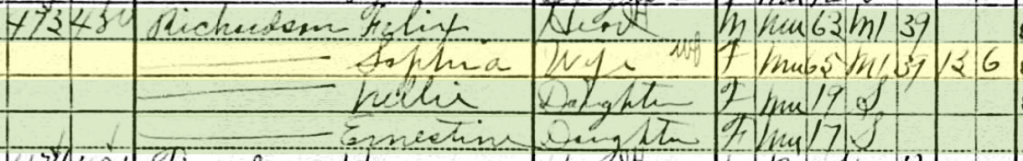 473 Richardson Felix Head M Mu 63 M1 39
Sophia Wife F Mu 65 M1 39 13 6
Nellie Daughter F Mu 19 S
Ernestine Daughter F Mu 17 S